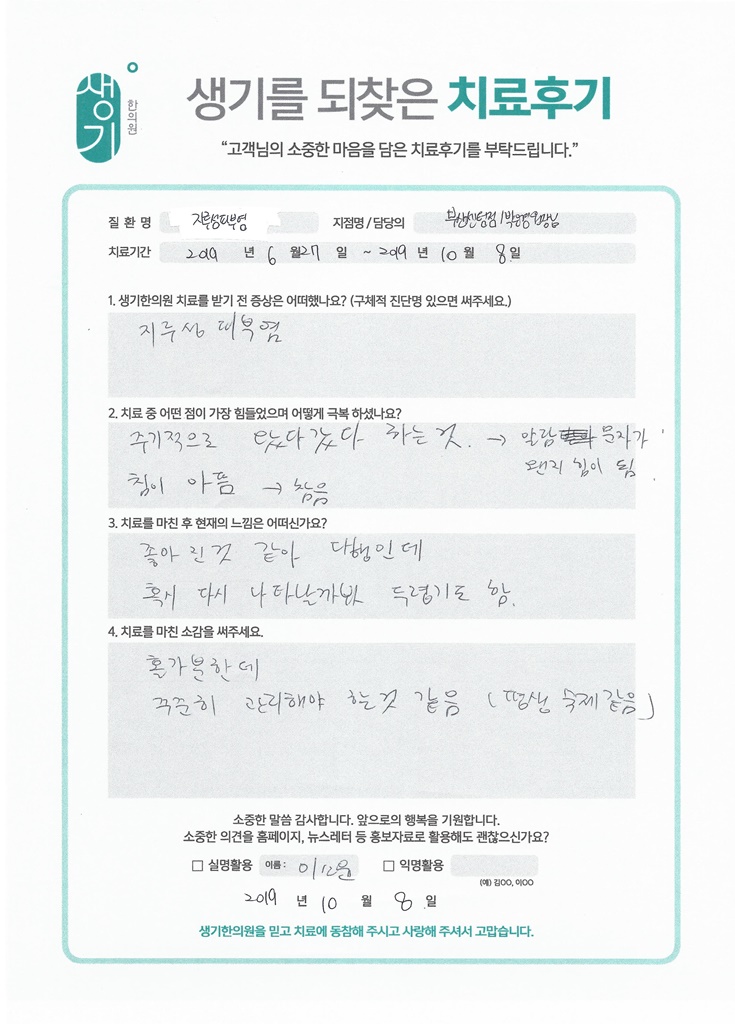 생기
한의원
생기를 되찾은 치료후기
“고객님의 소중한 마음을 담은 치료후기를 부탁드립니다.”
질 환 명 지루성피부염 지점명 / 담당의 부산센텀점 / 원장님
치료기간 2019 년 6 월 27 일 ~ 2019 년 10 월 8 일
1. 생기한의원 치료를 받기 전 증상은 어떠했나요? (구체적 진단명 있으면 써주세요.)
지루성 피부염
2. 치료 중 어떤 점이 가장 힘들었으며 어떻게 극복 하셨나요?
주기적으로 왔다갔다 하는것. → 알람 문자가
왠지 힘이 됨.
침이 아픔 → 참음
3. 치료를 마친 후 현재의 느낌은 어떠신가요?
좋아진것 같아 다행인데
혹시 다시 나타날까봐 두렵기도 함.
4. 치료를 마친 소감을 써주세요.
홀가분한데
꾸준히 관리해야 하는것 같음 (평생 숙제같음)
소중한 말씀 감사합니다. 앞으로의 행복을 기원합니다.
소중한 의견을 홈페이지, 뉴스레터 등 홍보자료로 활용해도 괜찮으신가요?
□ 실명활용 이름 : □ 익명활용
(예) 김OO, 이OO
2019 년 10 월 8 일
생기한의원을 믿고 치료에 동참해 주시고 사랑해 주셔서 고맙습니다.